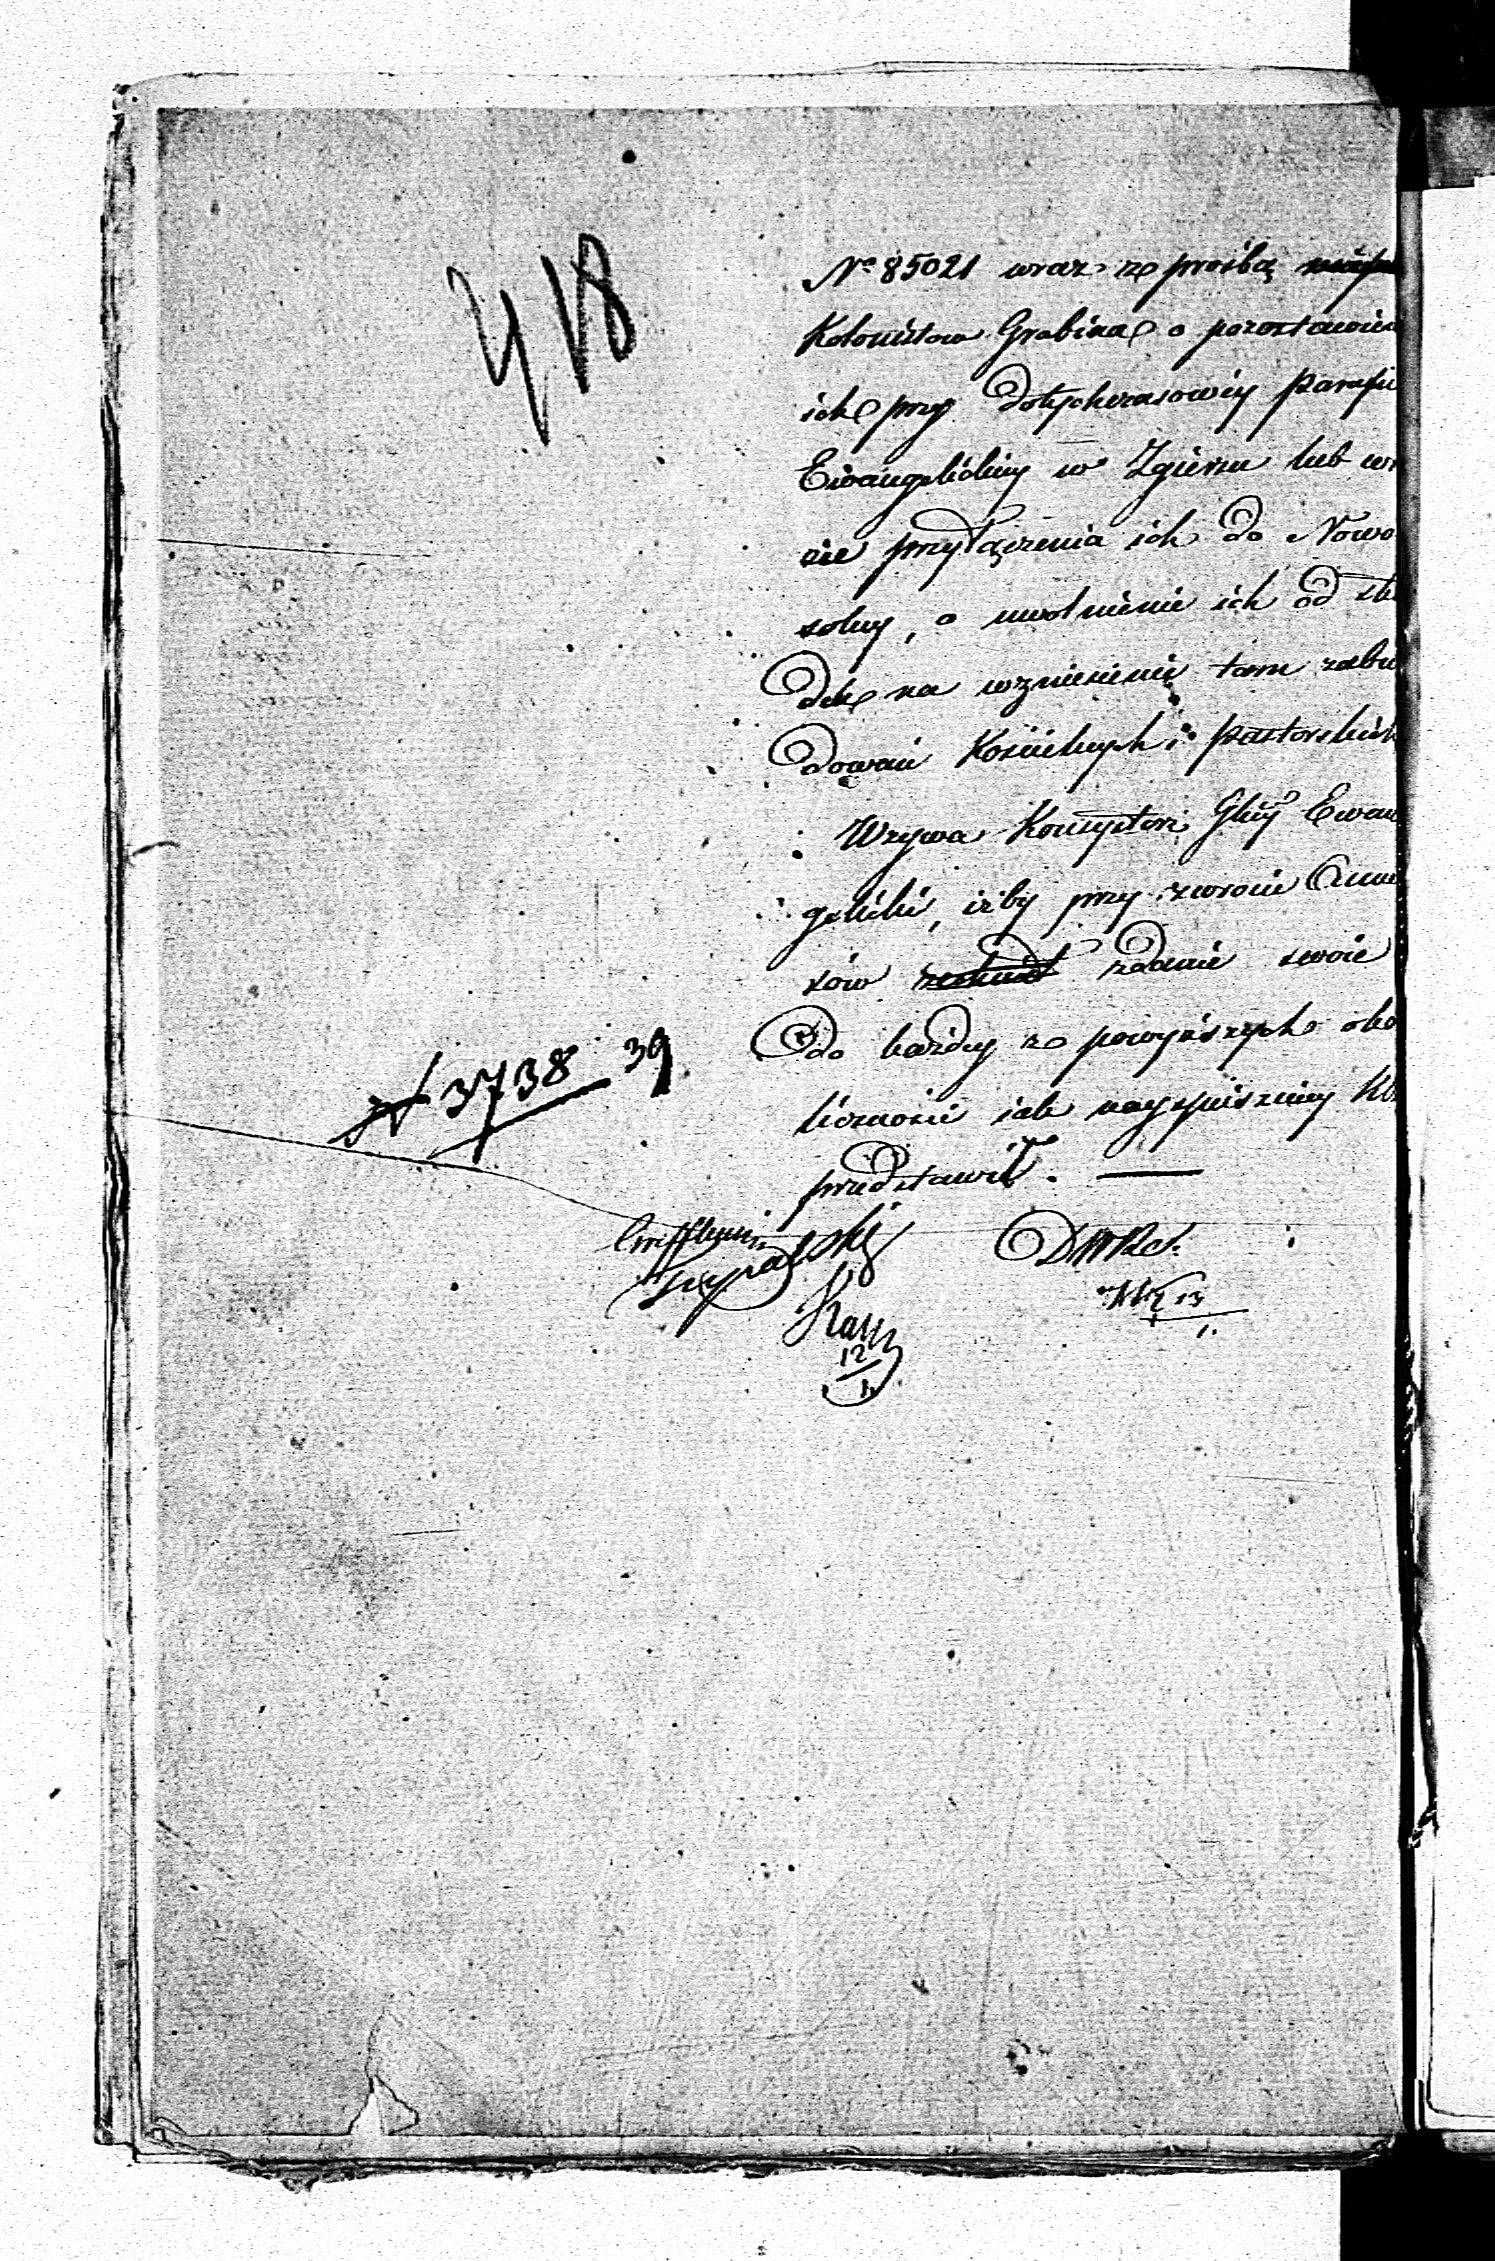 418
Nº 85021 wraz z prośbą
Kolonistow Grabina o pozostawien
ich przy dotychczasowéy Parafii
Ewangelickiey w Zgierzu lub w
zie przyłączenia ich do Nowo
solny, o uwolnienie ich od skła
dek na wzniesienie tam zabu
dowań Kościelnych i pastorskich
Wzywa Konsystorz Glny Ewan
gelicki, iżby przy zwrocie Anne
xów zdanie swoie
do każdey z powyższych oko
liczności iak nayspieszniey
przedstawił. —
№ 3738 39
12
1
13
1.